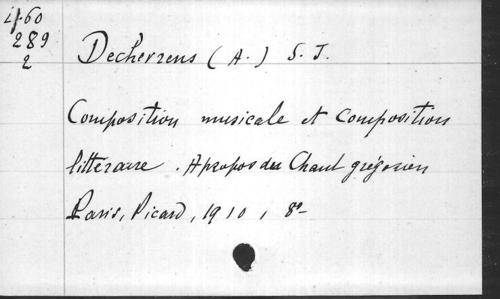 4-60
289
2
Dechevrens (A.) S. J.
Composition musicale et composition
littéraire. A propos du Chant grégorien
Paris, Picard, 1910, 8º